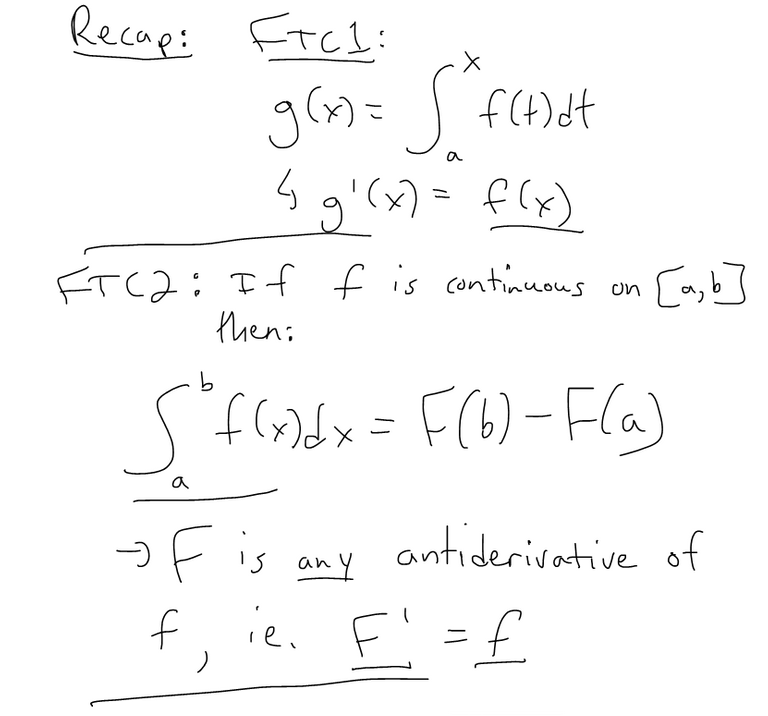 Recap: FTC1:
g(x) = ∫ₐˣ f(t)dt
↳ g'(x) = f(x)
FTC2: If f is continuous on [a,b]
then:
∫ₐᵇ f(x)dx = F(b) - F(a)
→ F is any antiderivative of
f, ie. F' = f